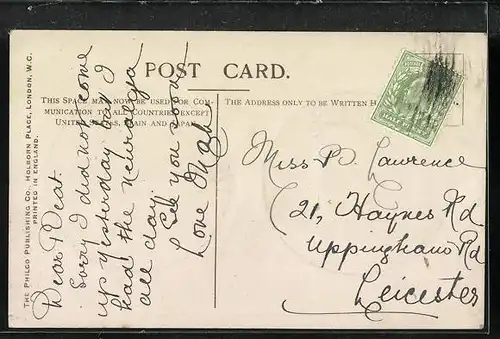 POST CARD.
THIS SPACE MAY NOW BE USED FOR COM-
MUNICATION TO ALL COUNTRIES EXCEPT
UNITED STATES, SPAIN AND JAPAN.
THE ADDRESS ONLY TO BE WRITTEN H
THE PHILCO PUBLISHING CO., HOLBORN PLACE, LONDON, W.C.
PRINTED IN ENGLAND.
Dear
Sorry I did not come
up yesterday but I
had the newralgia
all day.
See you soon
Love
Miss D. Lawrence
21, Haynes Rd
Uppingham Rd
Leicester
HALFPENNY